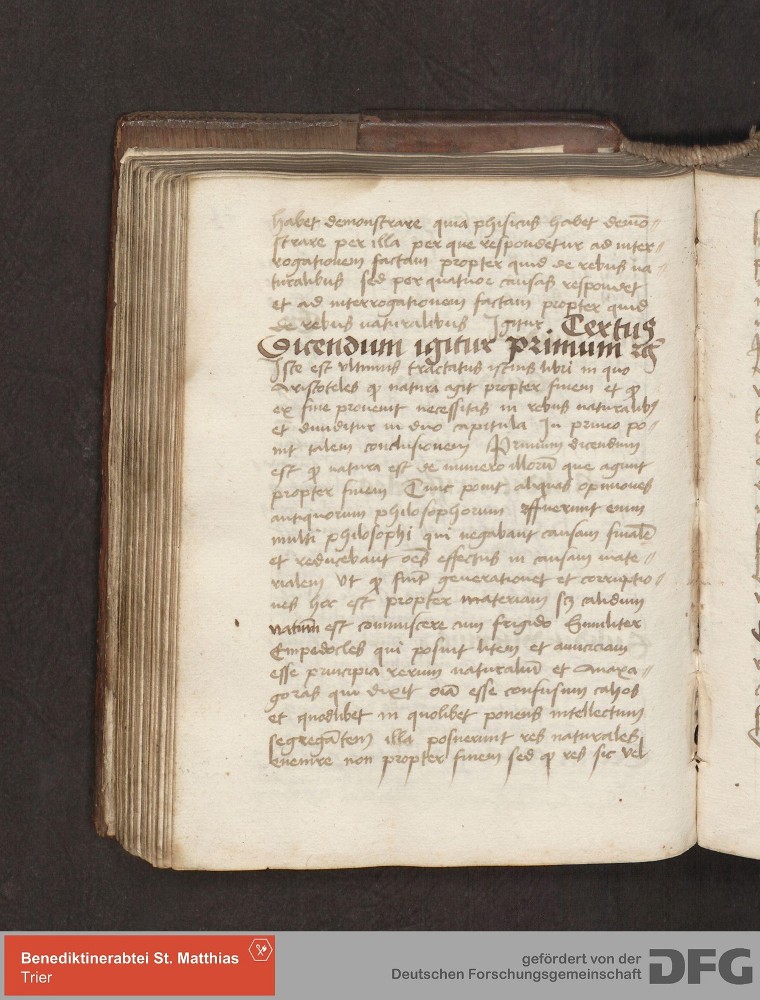 habet demonstrare quia phisicus habet demō-
strare per illa per que respondetur ad inter-
rogationem factam propter quid de rebus na-
turalibus sed per quatuor causas respondet
et ad interrogationem factam propter quid
de rebus naturalibus Igitur Textus
Dicendum igitur primum
Iste est ultimus tractatus istius libri in quo
Aristoteles q natura agit propter finem et q
ex fine provenit necessitas in rebus naturalibꝫ
et dividitur in duo capitula In primo po-
nit talem conclusionem Primum dicendum
est q natura est de numero illorū que agunt
propter finem Tunc ponit aliquas opiniones
antiquorum philosophorum ffuerunt enim
multi philosophi qui negabant causam finalē
et reducebant oēs effectus in causam mate-
rialem Ut q fiūt generationes et corruptio-
nes hoc est propter materiam scꝫ calidum
natum est commiscere cum frigido Similiter
Empedocles qui posuit litem et amiciciam
esse principia rerum naturaliū et Anaxa-
goras qui dixit oīa esse confusum cahos
et quodlibet in quolibet ponens intellectum
segregātem illa posuerunt res naturales
evenire non propter finem sed q res sic vel
Benediktinerabtei St. Matthias
Trier
gefördert von der
Deutschen Forschungsgemeinschaft
DFG